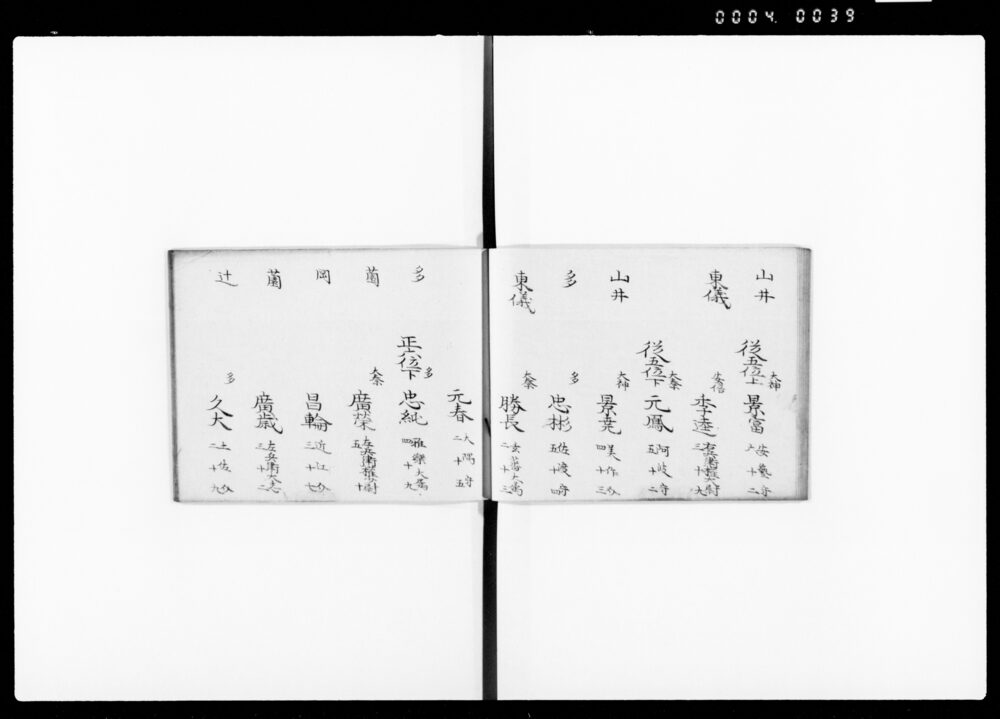 0004 0039
山井
従五位上 大神 景富 安藝守 六十二
東儀
安倍 季逵 右兵衛権大尉 三十九
従五位下 太秦 元鳳 阿波守 五十二
山井
大神 景堯 美作介 四十三
多
多 忠彬 佐渡守 五十四
東儀
太秦 勝長 玄蕃大属 二十三
元春 大隅守 二十五
多
正六位下 多 忠純 雅樂大属 四十九
薗
太秦 廣榮 左兵衛権大尉 五十
岡
昌輪 近江介 三十七
薗
廣歳 左兵衛大志 三十二
辻
多 久大 土佐介 二十九